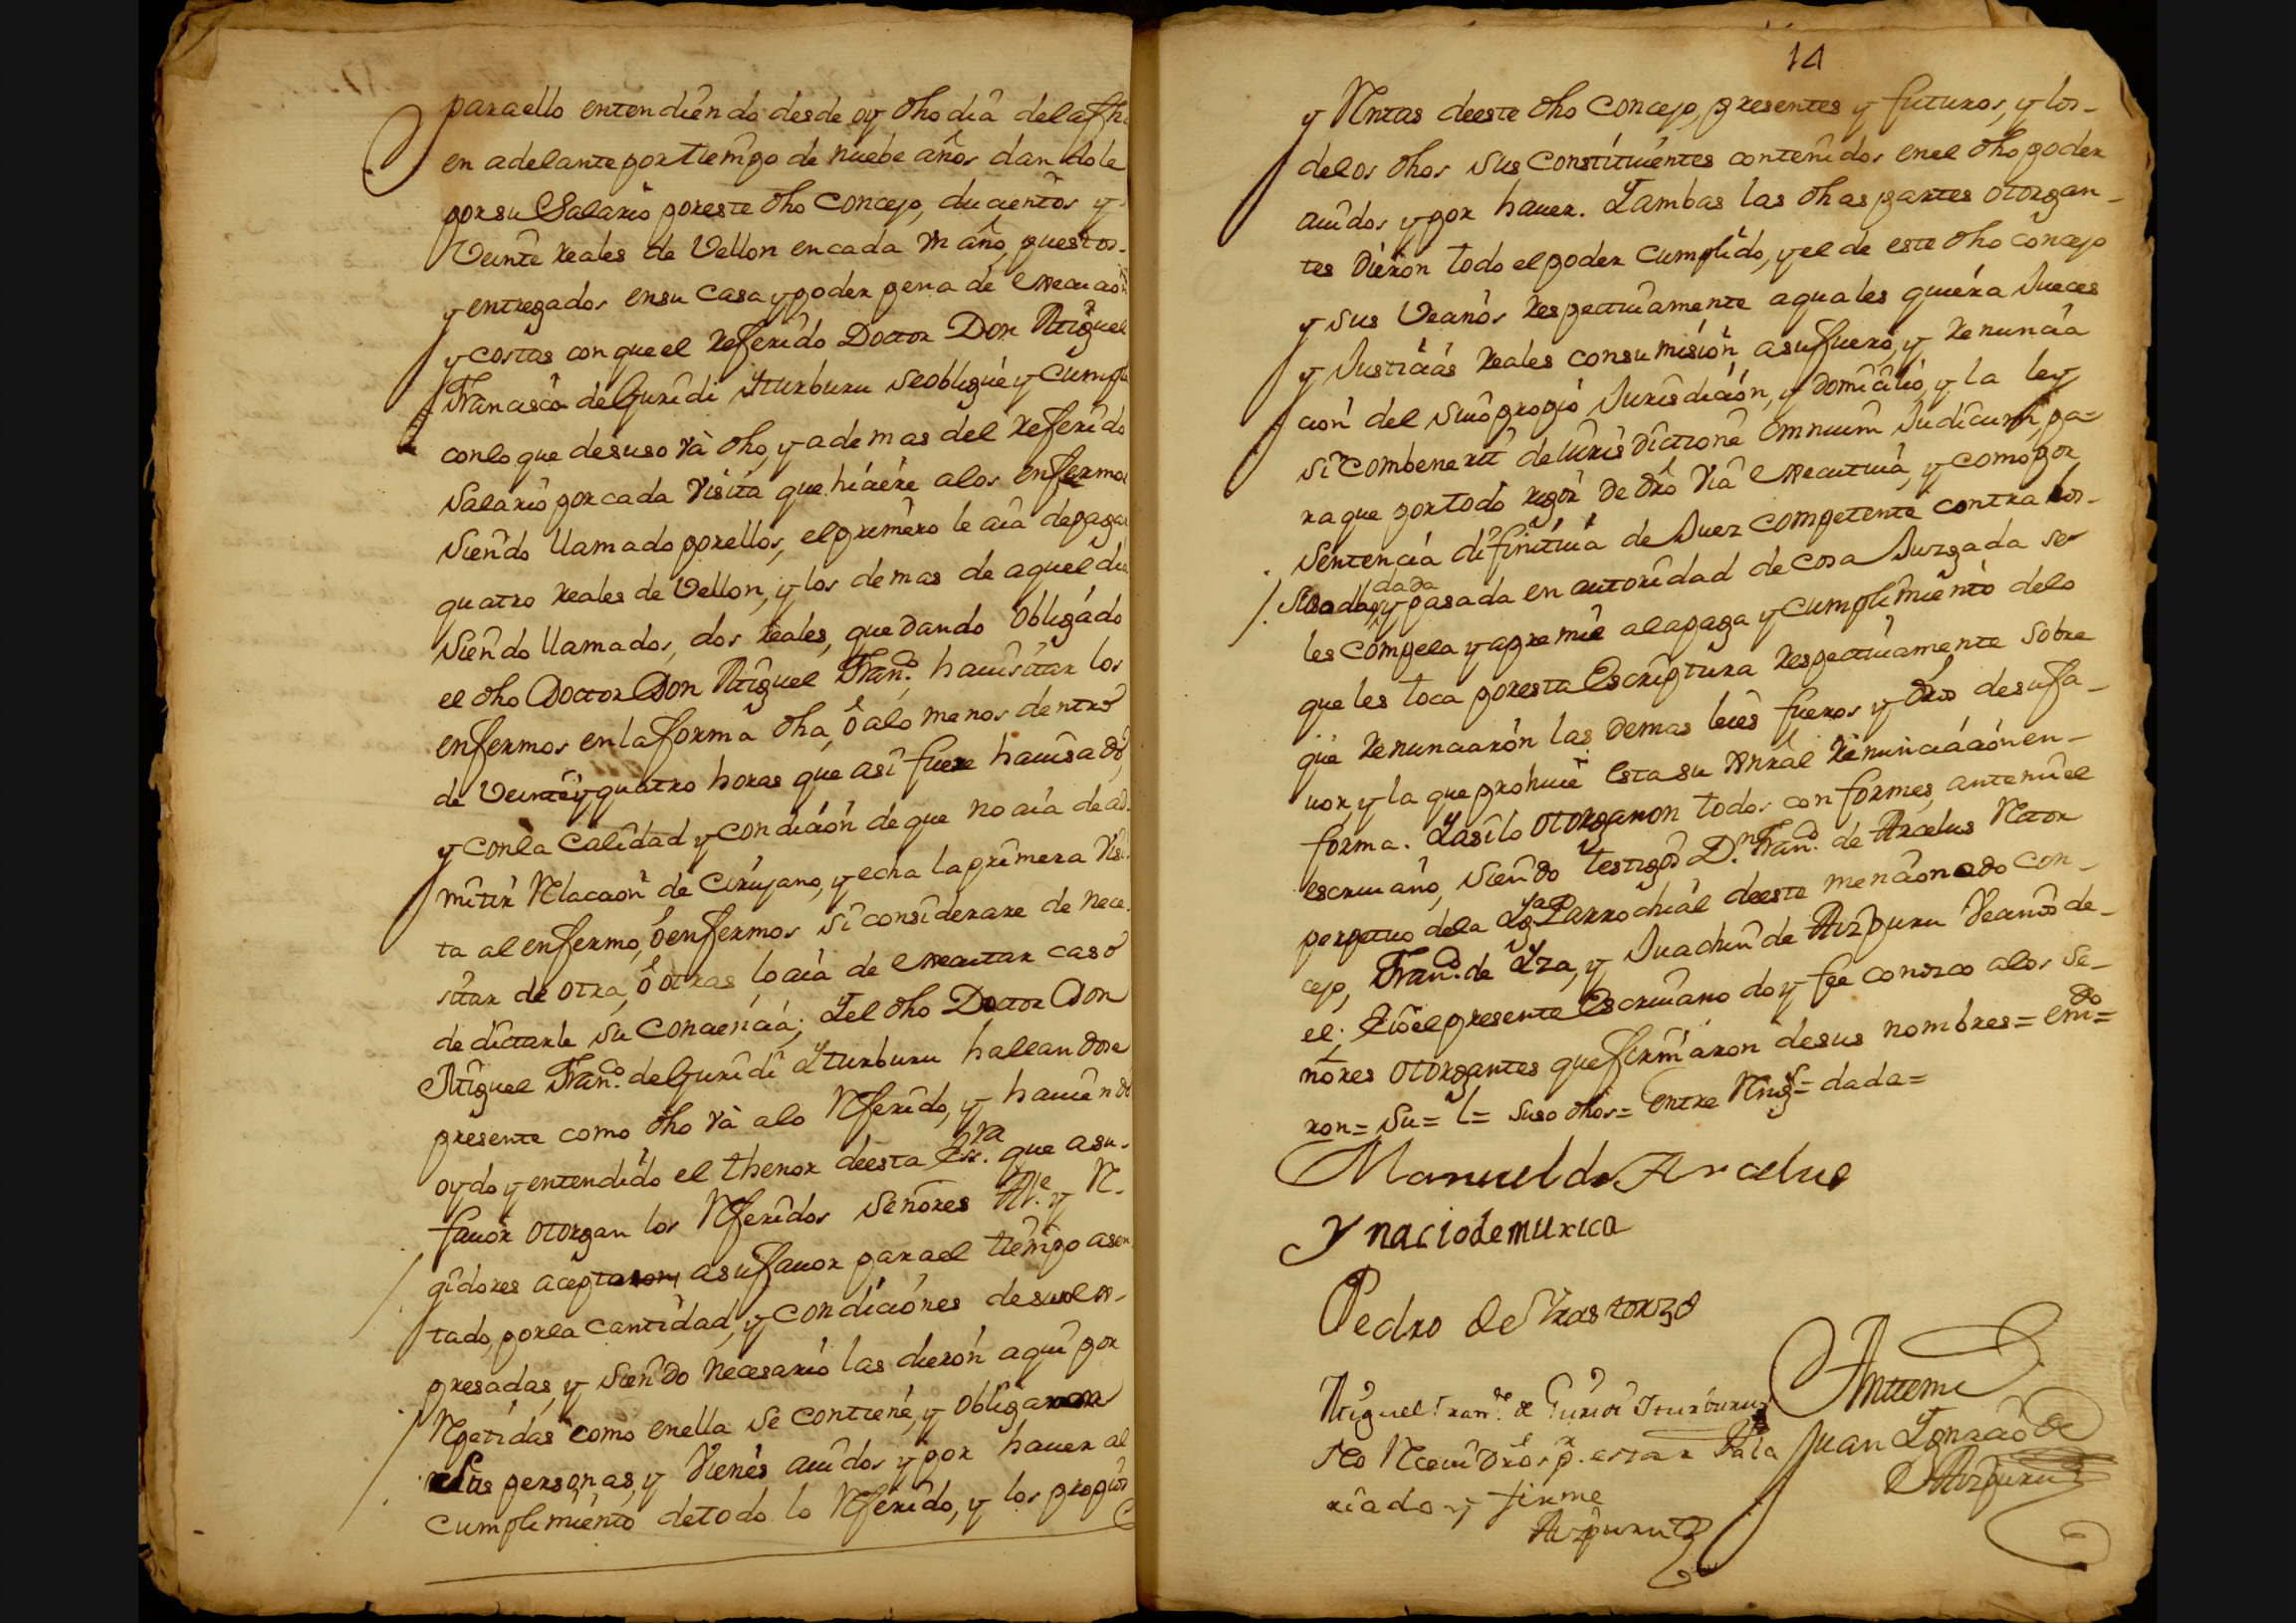 para ello entendiendo desde oy dho dia dela fha
en adelante por tiempo de nuebe años dandole
por su Salario por este dho Concejo, ducientos y
Veinte reales de Vellon en cada Vn año, puestos
y entregados en su Casa y poder pena de execucion
y costas con que el referido Doctor Don Miguel
Francisco de Guridi Yturburu se obligue y Cumpla
con lo que de suso va dho, y ademas del referido
Salario por cada Visita que hiciere a los enfermos
siendo llamado por ellos, el primero le aia de pagar
quatro reales de Vellon, y los demas de aquel dia
siendo llamados, dos reales, quedando obligado
el dho Doctor Don Miguel Franco. ha visitar los
enfermos en la forma dha, ô alo menos dentro
de Veinte y quatro horas que asi fuere havisado,
y con la Calidad y condicion de que no aia de ad-
mitir Relacion de Cirujano, y echa la primera Visi-
ta al enfermo, ô enfermos si considerare de nece-
sitar de otra, ô otras lo aia de executar caso
de dictarle su Conciencia; Y el dho Doctor Don
Miguel Franco. de Guridi Yturburu hallandose
presente como dho va a lo Referido, y haviendo
oydo y entendido el thenor de esta Essra. que a su
favor otorgan los Referidos Señores Alle. y Re-
gidores acepta a su favor para el tiempo asen
tado, por la Cantidad, y condiciones de suso ex-
presadas, y siendo necesario las dieron aqui por
Repetidas como en ella se contiene, y obligaron
sus personas, y Vienes avidos y por haver al
cumplimiento de todo lo Referido, y los propios
14
y Rentas de este dho Concejo, presentes y futuros, y los
delos dhos sus Constituientes contenidos en el dho poder
avidos y por haver. Y ambas las dhas partes otorgan-
tes dieron todo el poder Cumplido, y el de este dho concejo
y sus Vecinos respectivamente a quales quiera Jueces
y Justicias reales con sumision a su fuero, y renuncia
cion del suio propio Jurisdicion, y domicilio, y la ley
si combenerit de jurisdictione omnium Judicum, pa-
ra que por todo rigor de dro Via executiva, y como por
Sentencia difinitiva de Juez competente contra los
dada
y pasada en autoridad de cosa Juzgada se
les compela y apremie a la paga y cumplimiento de lo
que les toca por esta Escriptura respectivamente sobre
que renunciaron las demas leies fueros y dros de su fa-
vor, y la que prohive esta su Xnral renunciacion en
forma. Y asi lo otorgaron todos conformes, ante mi el
escrivano, siendo testigos Dn. Franco. de Arcelus Rector
perpetuo de la Ygª Parrochial de este mencionado con-
cejo, Franco. de Yza, y Juachin de Aizpuru Vecinos de
el; E io el presente Escrivano doy fee conozco a los se-
ñores otorgantes que firmaron de sus nombres= emdo=
ron= su= l= susodhos= entre Rengs= dada=
Manuel de Arcelus
Ynacio de muxica
Pedro de Yrastorza
Miguel Franco. de Guridi Yturburu
Ante mi
Juan Ygnacio de
Aizpuru
No Recivi dros pr. estar Sala
riado y firme
Aizpuru